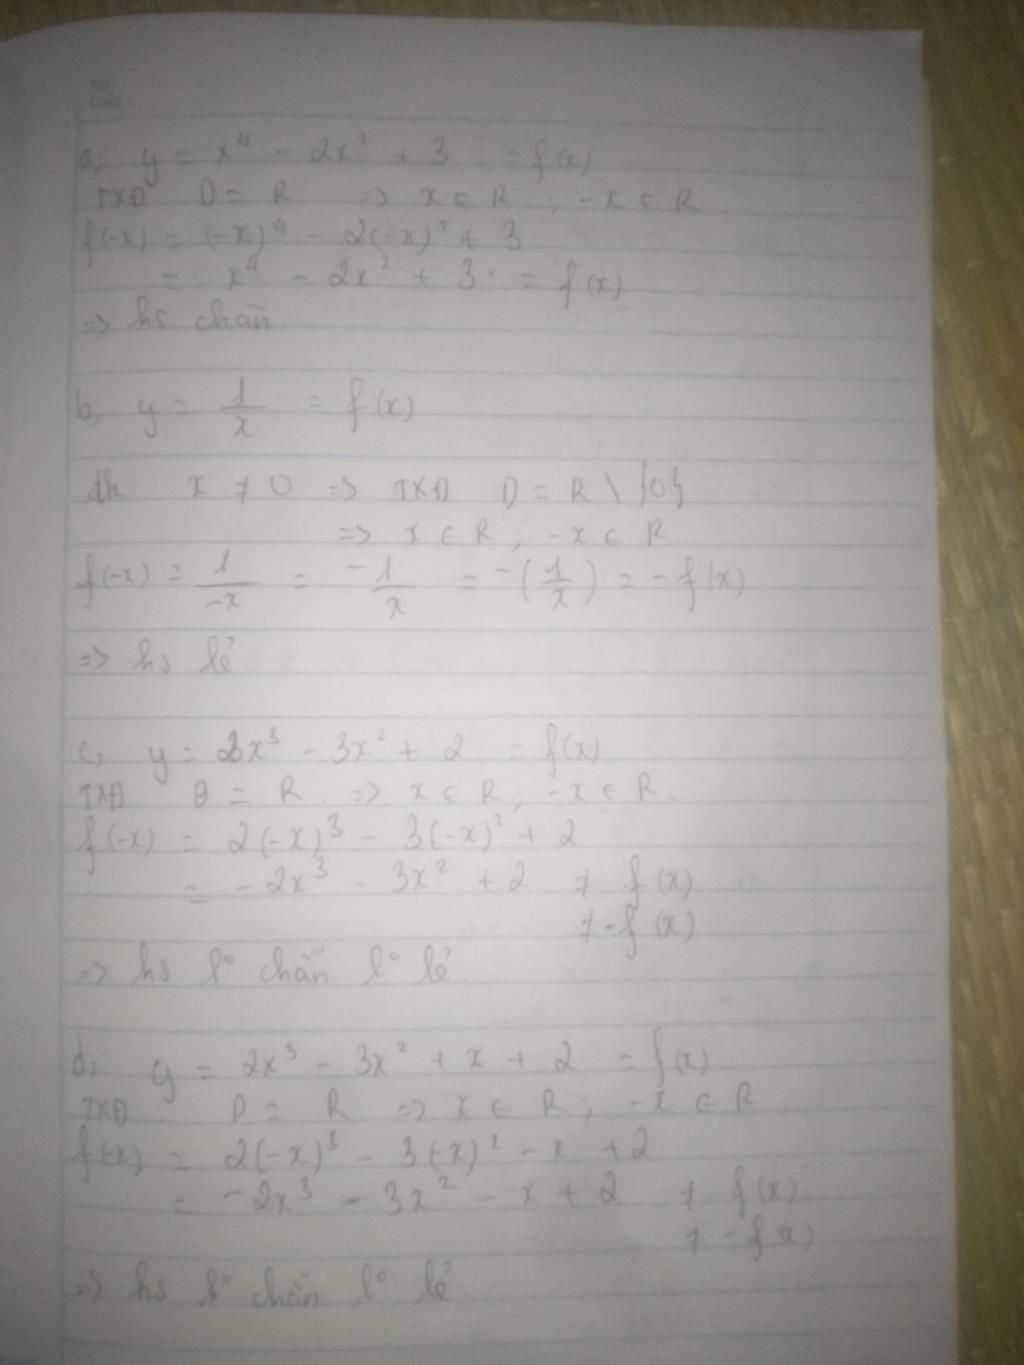 No
Date
a, y = x⁴ - 2x² + 3 = f(x)
TXĐ D = R => x ∈ R ; -x ∈ R
f(-x) = (-x)⁴ - 2(-x)² + 3
= x⁴ - 2x² + 3 = f(x)
=> hs chẵn
b, y = 1/x = f(x)
đk x ≠ 0 => TXĐ D = R \ {0}
=> x ∈ R ; -x ∈ R
f(-x) = 1/-x = -1/x = -(1/x) = -f(x)
=> hs lẻ
c, y = 2x³ - 3x² + 2 = f(x)
TXĐ D = R => x ∈ R ; -x ∈ R
f(-x) = 2(-x)³ - 3(-x)² + 2
= -2x³ - 3x² + 2 ≠ f(x)
≠ -f(x)
=> hs l° chẵn l° lẻ
d, y = 2x³ - 3x² + x + 2 = f(x)
TXĐ D = R => x ∈ R ; -x ∈ R
f(-x) = 2(-x)³ - 3(-x)² - x + 2
= -2x³ - 3x² - x + 2 ≠ f(x)
≠ -f(x)
=> hs l° chẵn l° lẻ